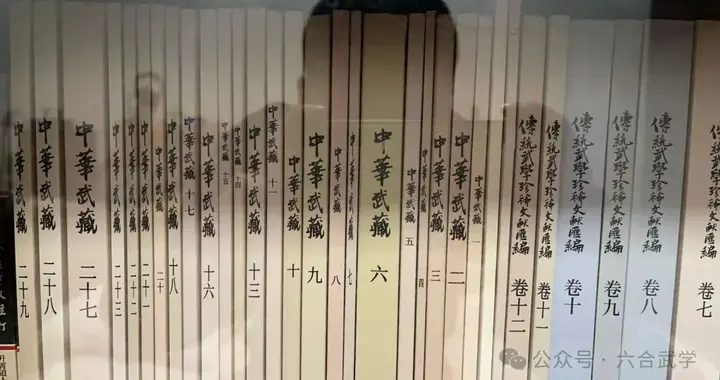 中華武藏 二十九
中華武藏 二十八
中華武藏 二十七
中華武藏 二十三
中華武藏 二十二
中華武藏 二十一
中華武藏 二十
中華武藏 十八
中華武藏 十七
中華武藏 十六
中華武藏 十五
中華武藏 十四
中華武藏 十三
中華武藏 十一
中華武藏 十
中華武藏 九
中華武藏 八
中華武藏 七
中華武藏 六
中華武藏 五
中華武藏 四
中華武藏 三
中華武藏 二
中華武藏 一
傳統武學珍稀文献匯編 卷十二
傳統武學珍稀文献匯編 卷十一
傳統武學珍稀文献匯編 卷十
傳統武學珍稀文献匯編 卷九
傳統武學珍稀文献匯編 卷八
傳統武學珍稀文献匯編 卷七
公众号·六合武学